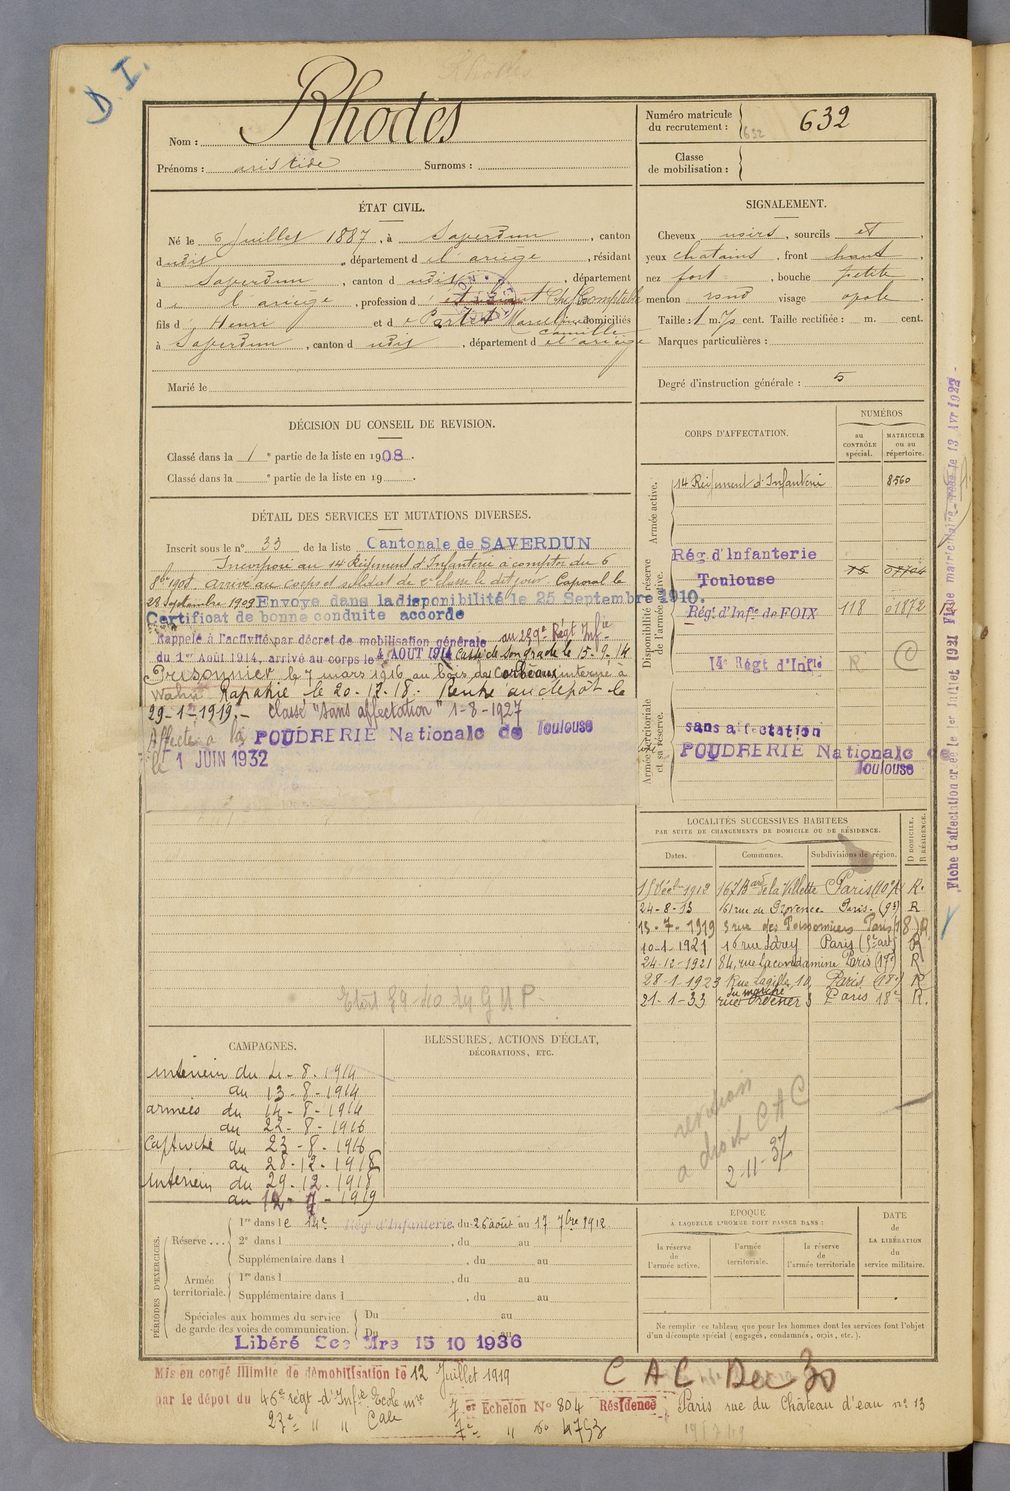 D I.
Rhodes
Nom :
Prénoms : aristide Surnoms :
Numéro matricule
du recrutement : 632
632
Classe
de mobilisation :
ÉTAT CIVIL.
Né le 6 Juillet 1887, à Saverdun, canton
dudit, département de l'ariège, résidant
à Saverdun, canton dudit, département
de l'ariège, profession d'étudiant Chef Comptable
fils d' Henri et de domiciliés
Camille
à Saverdun, canton dudit, département de l'ariège
Marié le
SIGNALEMENT.
Cheveux noirs, sourcils et
yeux chatains, front haut
nez fort, bouche petite
menton rond visage ovale
Taille : 1 m. 70 cent. Taille rectifiée : m. cent.
Marques particulières :
Degré d'instruction générale : 5
DÉCISION DU CONSEIL DE REVISION.
Classé dans la 1e partie de la liste en 1908.
Classé dans la e partie de la liste en 19
DÉTAIL DES SERVICES ET MUTATIONS DIVERSES.
Inscrit sous le n° 33 de la liste Cantonale de SAVERDUN
Incorporé au 14 Régiment d'Infanterie à compter du 6
8bre 1908. arrivé au corps et soldat de 2e classe le dit jour. Caporal le
28 Septembre 1909 Envoyé dans la disponibilité le 25 Septembre 1910.
Certificat de bonne conduite accordé
Rappelé à l'activité par décret de mobilisation générale au 259e Régt Infie
du 1er Août 1914, arrivé au corps le 4 AOUT 1914 Cassé de son grade le 15-9-14
Prisonnier le 7 mars 1916 au bois des Corbeaux interné à
Wahn Rapatrié le 20-12-18. Rentré au dépôt le
29-1-1919. classé "Sans affectation" 1-8-1927
Affecté à la POUDRERIE Nationale de Toulouse
le 1 JUIN 1932
Etat 89-40 24 G U P.
CORPS D'AFFECTATION.
NUMÉROS
au
CONTRÔLE
spécial.
MATRICULE
ou au
répertoire.
Armée active.
14 Régiment d'Infanterie 8560
Disponibilité et réserve
de l'armée active.
Rég. d'Infanterie
Toulouse 75
Rég. d'Infie de FOIX 118 01872
14e Régt d'Infie R C
Armée territoriale
et sa réserve.
sans affectation
POUDRERIE Nationale de
Toulouse
Fiche d'affectation créée le 1er Juillet 1921 Fiche matriculaire
LOCALITÉS SUCCESSIVES HABITÉES
PAR SUITE DE CHANGEMENTS DE DOMICILE OU DE RÉSIDENCE.
Dates. Communes. Subdivisions de région. D DOMICILE. R RÉSIDENCE.
15 Décbre 1912 167 Bard de la Villette Paris (10e) R.
24-8-13 161 rue de Provence Paris. (9e) R
13-7-1919 3 rue des Poissonniers Paris (18) R.
10-1-1921 16 rue Paris (5e arr) R
24-12-1921 84, rue Lacondamine Paris (17e) R
28-1-1923 Rue Lagille, 10, Paris (18e) R
du marché
21-1-33 rue Ordener 3 Paris 18e R.
revision
a droit C A C
2-11-37
CAMPAGNES.
Intérieur du 4-8-1914
au 13-8-1914
armées du 14-8-1914
au 22-8-1916
Captivité du 23-8-1916
au 28-12-1918
Intérieur du 29-12-1918
au 12-7-1919
BLESSURES, ACTIONS D'ÉCLAT,
DÉCORATIONS, ETC.
PÉRIODES D'EXERCICES.
Réserve ... 1re dans le 14e Rég. d'Infanterie, du 26 août au 17 7bre 1912
2e dans l , du au
Supplémentaire dans l , du au
Armée
territoriale. 1re dans l , du au
Supplémentaire dans l , du au
Spéciales aux hommes du service
de garde des voies de communication. Du au
Du au
Libéré Sce Mre 15 10 1936
ÉPOQUE
À LAQUELLE L'HOMME DOIT PASSER DANS :
la réserve
de l'armée active.
l'armée
territoriale.
la réserve
de l'armée territoriale
DATE
de
LA LIBÉRATION
du
service militaire.
Ne remplir ce tableau que pour les hommes dont les services font l'objet
d'un décompte spécial (engagés, condamnés, omis, etc.).
Mis en congé illimité de démobilisation le 12 Juillet 1919
par le dépôt du 46e régt d'Infie Ecole mre
7er Echelon N° 804 Résidence Paris rue du Château d'eau n° 13
23e " "
7e " no 4793
C A C Dec 30